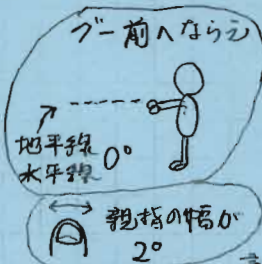 グー前へならえ
地平線
水平線 0°
親指の幅が
2°